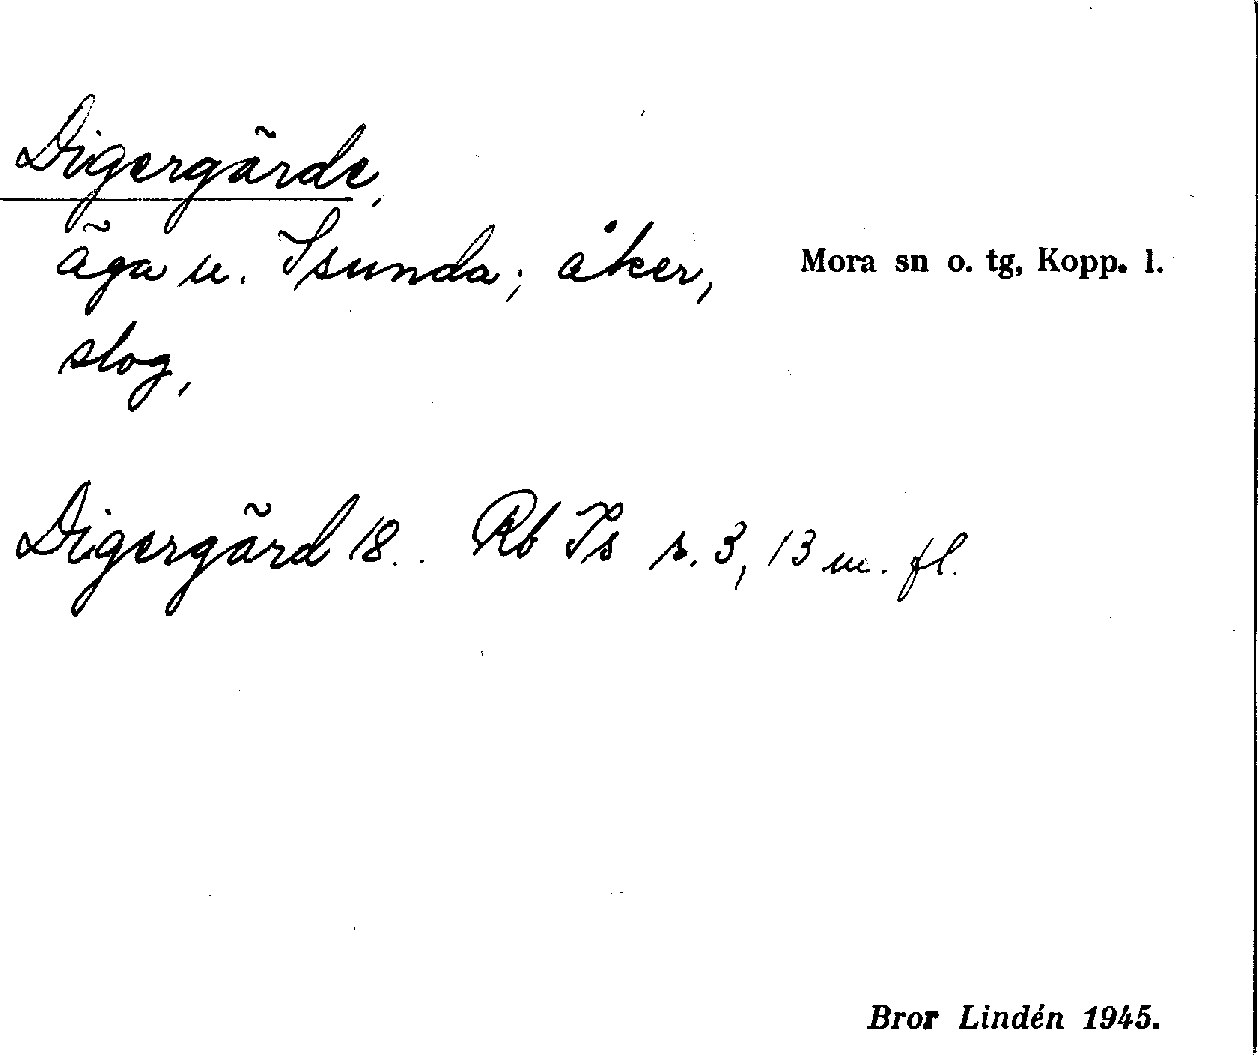 Digergärde,
äga u. Isunda; åker,
Mora sn o. tg, Kopp. l.
slog,
Digergärd 18.. Rb Is s. 3, 13 m. fl.
Bror Lindén 1945.